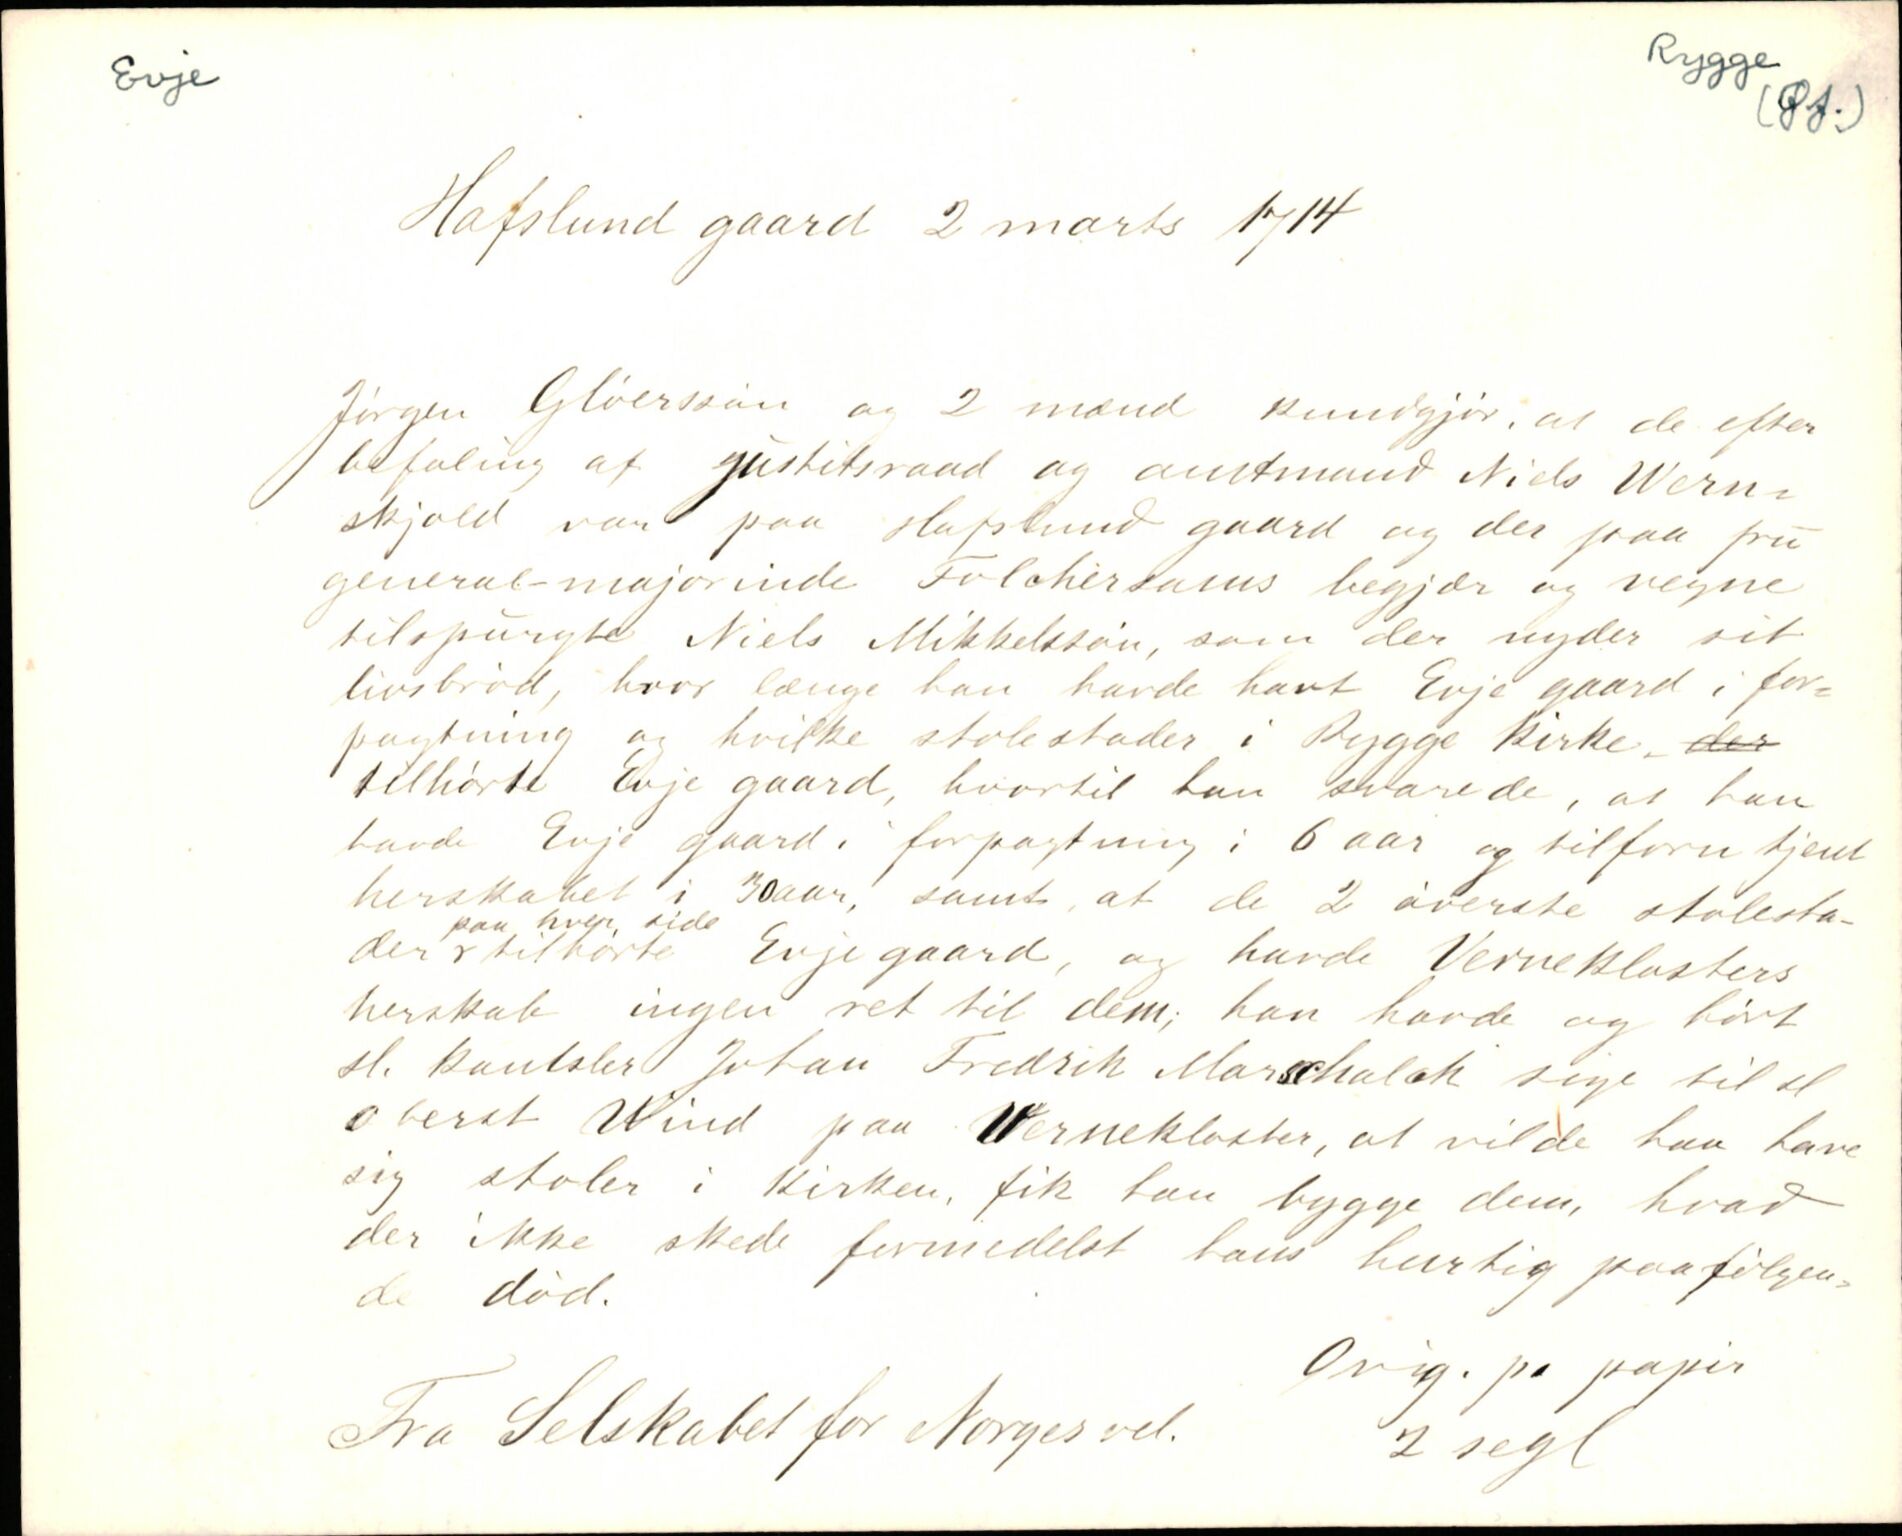 Evje
Rygge
(Øf.)
Hafslund gaard 2 marts 1714
Jörgen Glöerssön og 2 mænd kundgjör, at de efter
befaling af justitsraad og amtmand Niels Wern=
skjold var paa Hafslund gaard og der paa fru
general-majorinde Folchersams begjær og vegne
tilspurgte Niels Mikkelssön, som der nyder sit
livsbröd, hvor længe han havde havt Evje gaard i for=
pagtning og hvilke stolestader i Rygge kirke, der
tilhörte Evje gaard, hvortil han svarede, at han
havde Evje gaard i forpagtning i 6 aar og tilforn tjent
herskabet i 30 aar, samt, at de 2 överste stolesta-
paa hver side
der tilhörte Evje gaard, og havde Verneklosters
herskab ingen ret til dem; han havde og hört
sl. kantsler Johan Fredrik Marschalck sige til sl
oberst Wind paa Wernekloster, at vilde han have
sig stoler i kirken, fik han bygge dem, hvad
der ikke skede formedelst hans hurtig paafölgen=
de död.
Orig. pa papir
2 segl
Fra Selskabet for Norges vel.